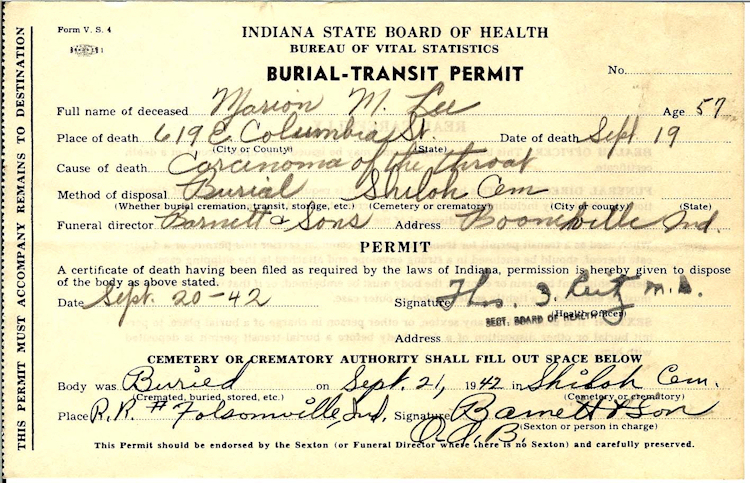 Form V. S. 4
INDIANA STATE BOARD OF HEALTH
BUREAU OF VITAL STATISTICS
BURIAL-TRANSIT PERMIT
No.
Full name of deceased Marion M. Lee Age 57
Place of death 619 E. Columbia St. Date of death Sept 19
(City or County) (State)
Cause of death Carcinoma of the throat
Method of disposal Burial Shiloh Cem
(Whether burial cremation, transit, storage, etc.) (Cemetery or crematory) (City or county) (State)
Funeral director Barnett & Sons Address Booneville Ind.
PERMIT
A certificate of death having been filed as required by the laws of Indiana, permission is hereby given to dispose
of the body as above stated.
Date Sept. 20-42 Signature Thos. M.D.
(Health Officer)
SECT. BOARD OF HEALTH
Address
CEMETERY OR CREMATORY AUTHORITY SHALL FILL OUT SPACE BELOW
Body was Buried on Sept. 21, 1942 in Shiloh Cem.
(Cremated, buried, stored, etc.) (Cemetery or crematory)
Place R.R. # Folsomville, Ind. Signature Barnett & Son
(Sexton or person in charge)
O.A.B.
This Permit should be endorsed by the Sexton (or Funeral Director where there is no Sexton) and carefully preserved.
THIS PERMIT MUST ACCOMPANY REMAINS TO DESTINATION